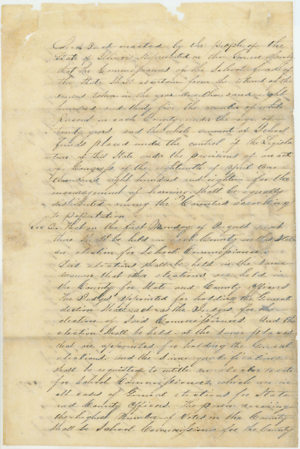 Be it enacted by the people of the
State of Illinois Represented in the General Assembly
that the Commissioners of the School fund of
the State shall ascertain from the
taken in the year eighteen hundred
and thirty five the number of white
in each County under the age of
twenty years and the whole amount of School
funds placed under the control of the Legisla
ture of this State under the provisions of an act
of Congress of the eighteenth of April One
thousand eight hundred and eighteen for the
encouragement of learning shall be equally
distributed among the Counties according
to population
Sec 2 That on the first Monday of August
there shall be held in each County in the State
an election for School Commissioners
Said elections shall be held in the same
manner that other elections are held in
the County for State and County officers
The Judges appointed for holding the General
election shall be the Judges for the
election of said Commissioners And the
election shall be held at the same places
that are appointed for holding the General
elections and the same qualifications
shall be required to entitle an elector to vote
for School Commissioners which are in
all cases of General elections for State
and County officers The person receiving
the highest Number of Votes in the County
shall be School Commissioner for the County